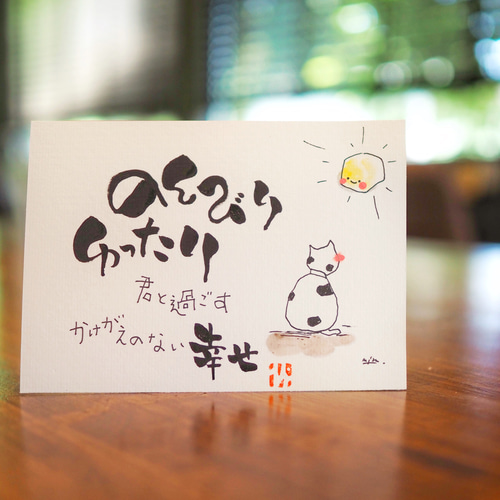 のんびり
ゆったり
君と過ごす
かけがえのない幸せ